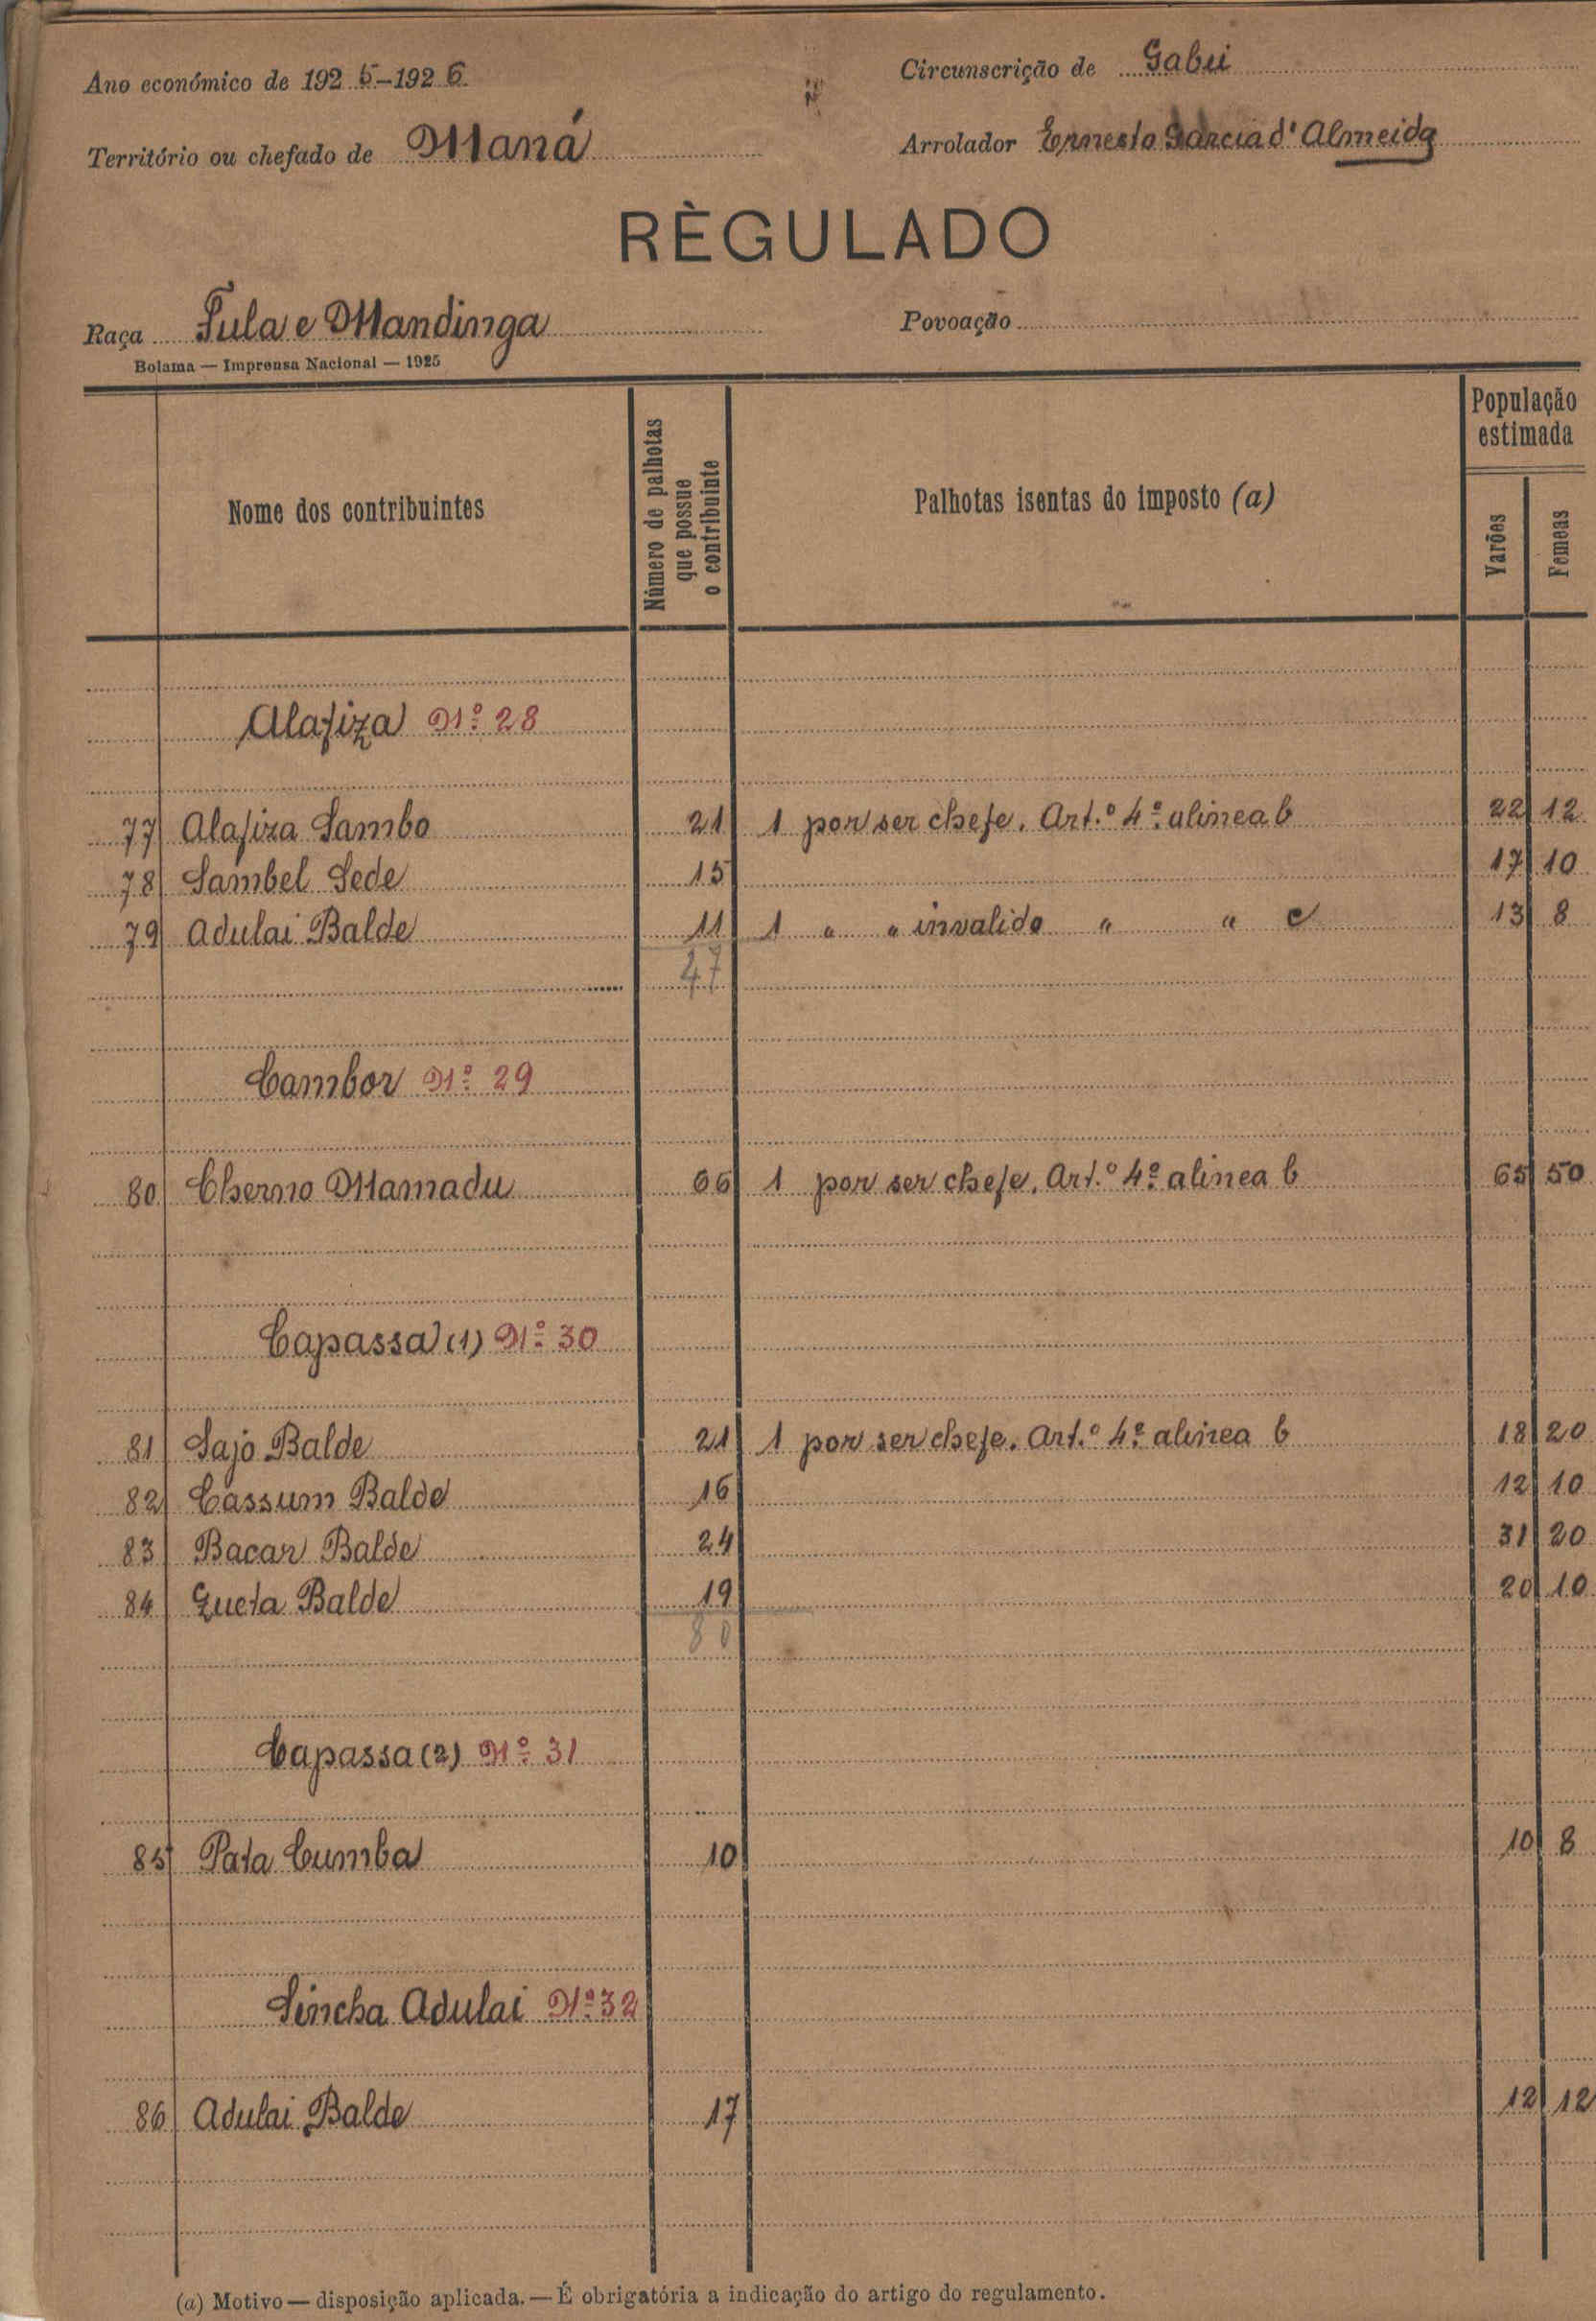 Ano económico de 1925-1926
Circunscrição de Gabú
Território ou chefado de Maná
Arrolador Ernesto Garcia d'Almeida
RÈGULADO
Raça Fula e Mandinga
Povoação
Bolama — Imprensa Nacional — 1925
Nome dos contribuintes
Número de palhotas que possue o contribuinte
Palhotas isentas do imposto (a)
População estimada
Varões
Femeas
Alafiza Nº 28
77 Alafiza Sambo 21 1 por ser chefe. Art.º 4º alinea b 22 12
78 Sambel Sede 15 17 10
79 Adulai Balde 11 1 " " invalido " " c 13 8
47
Cambor Nº 29
80 Cherno Mamadu 66 1 por ser chefe. Art.º 4º alinea b 65 50
Capassa (1) Nº 30
81 Sajo Balde 21 1 por ser chefe. Art.º 4º alinea b 18 20
82 Cassum Balde 16 12 10
83 Bacar Balde 24 31 20
84 Queta Balde 19 20 10
80
Capassa (2) Nº 31
85 Pata Cumba 10 10 8
Sincha Adulai Nº 32
86 Adulai Balde 17 12 12
(a) Motivo — disposição aplicada. — É obrigatória a indicação do artigo do regulamento.